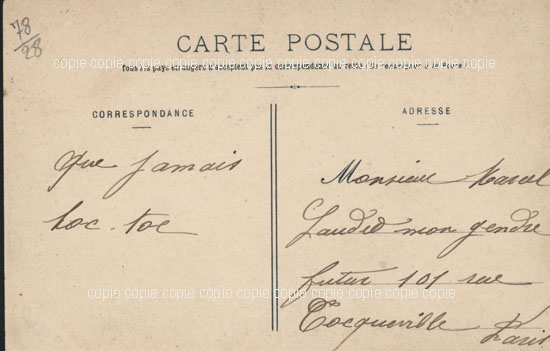 78
28
CARTE POSTALE
copie copie copie copie copie copie copie copie copie copie copie
CORRESPONDANCE
ADRESSE
que jamais
toc-toc
copie copie copie copie copie copie copie copie copie copie copie
Monsieur Marcel
mon gendre
futur 101 rue
copie copie copie copie copie copie copie copie copie copie copie
Tocqueville Paris